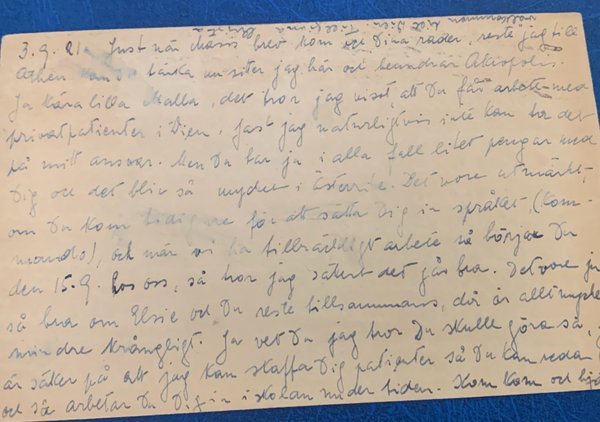 3.9.21. Just när Maxis brev kom och Dina rader, reste jag till
Athen kan Du tänka nu sitter jag här och beundrar Akropolis.
Ja kära lilla Malla, det tror jag visst att Du får arbete med
privatpatienter i Wien, fast jag naturligtvis inte kan ta det
på mitt ansvar. Men Du har ju i alla fall litet pengar med
Dig och det blir så mycket i Österrike. Det vore utmärkt,
om Du kom tidigare för att sätta Dig in språket, (Kom-
mando), och när vi ha tillräckligt arbete så börjar Du
den 15.9. hos oss, så tror jag säkert det går bra. Det vore ju
så bra om Elsie och Du reste tillsammans, då är allt mycket
mindre krångligt. Ja vet Du jag tror Du skulle göra så,
är säker på att jag kan skaffa Dig patienter så Du kan reda
och så arbetar Du Dig in i skolan under tiden. Kom kom och